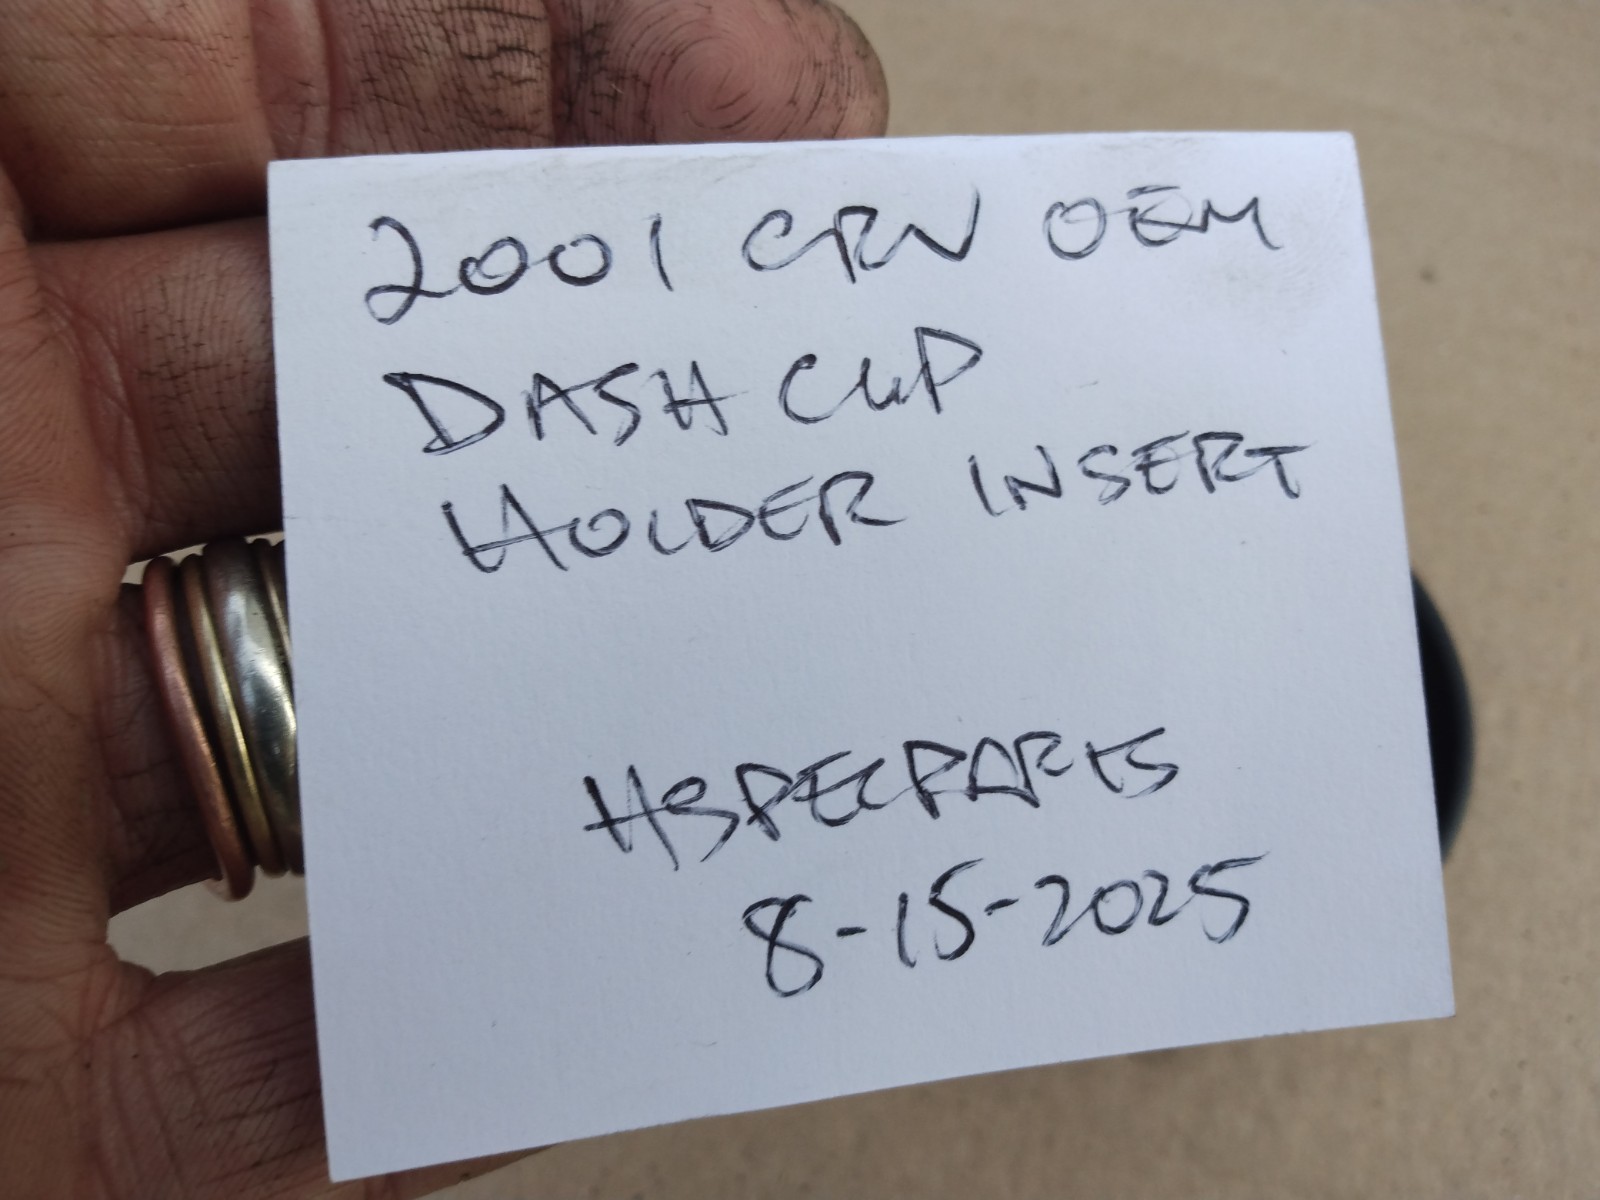 2001 CRV OEM
DASH CUP
HOLDER INSERT
HSPECPARTS
8-15-2025